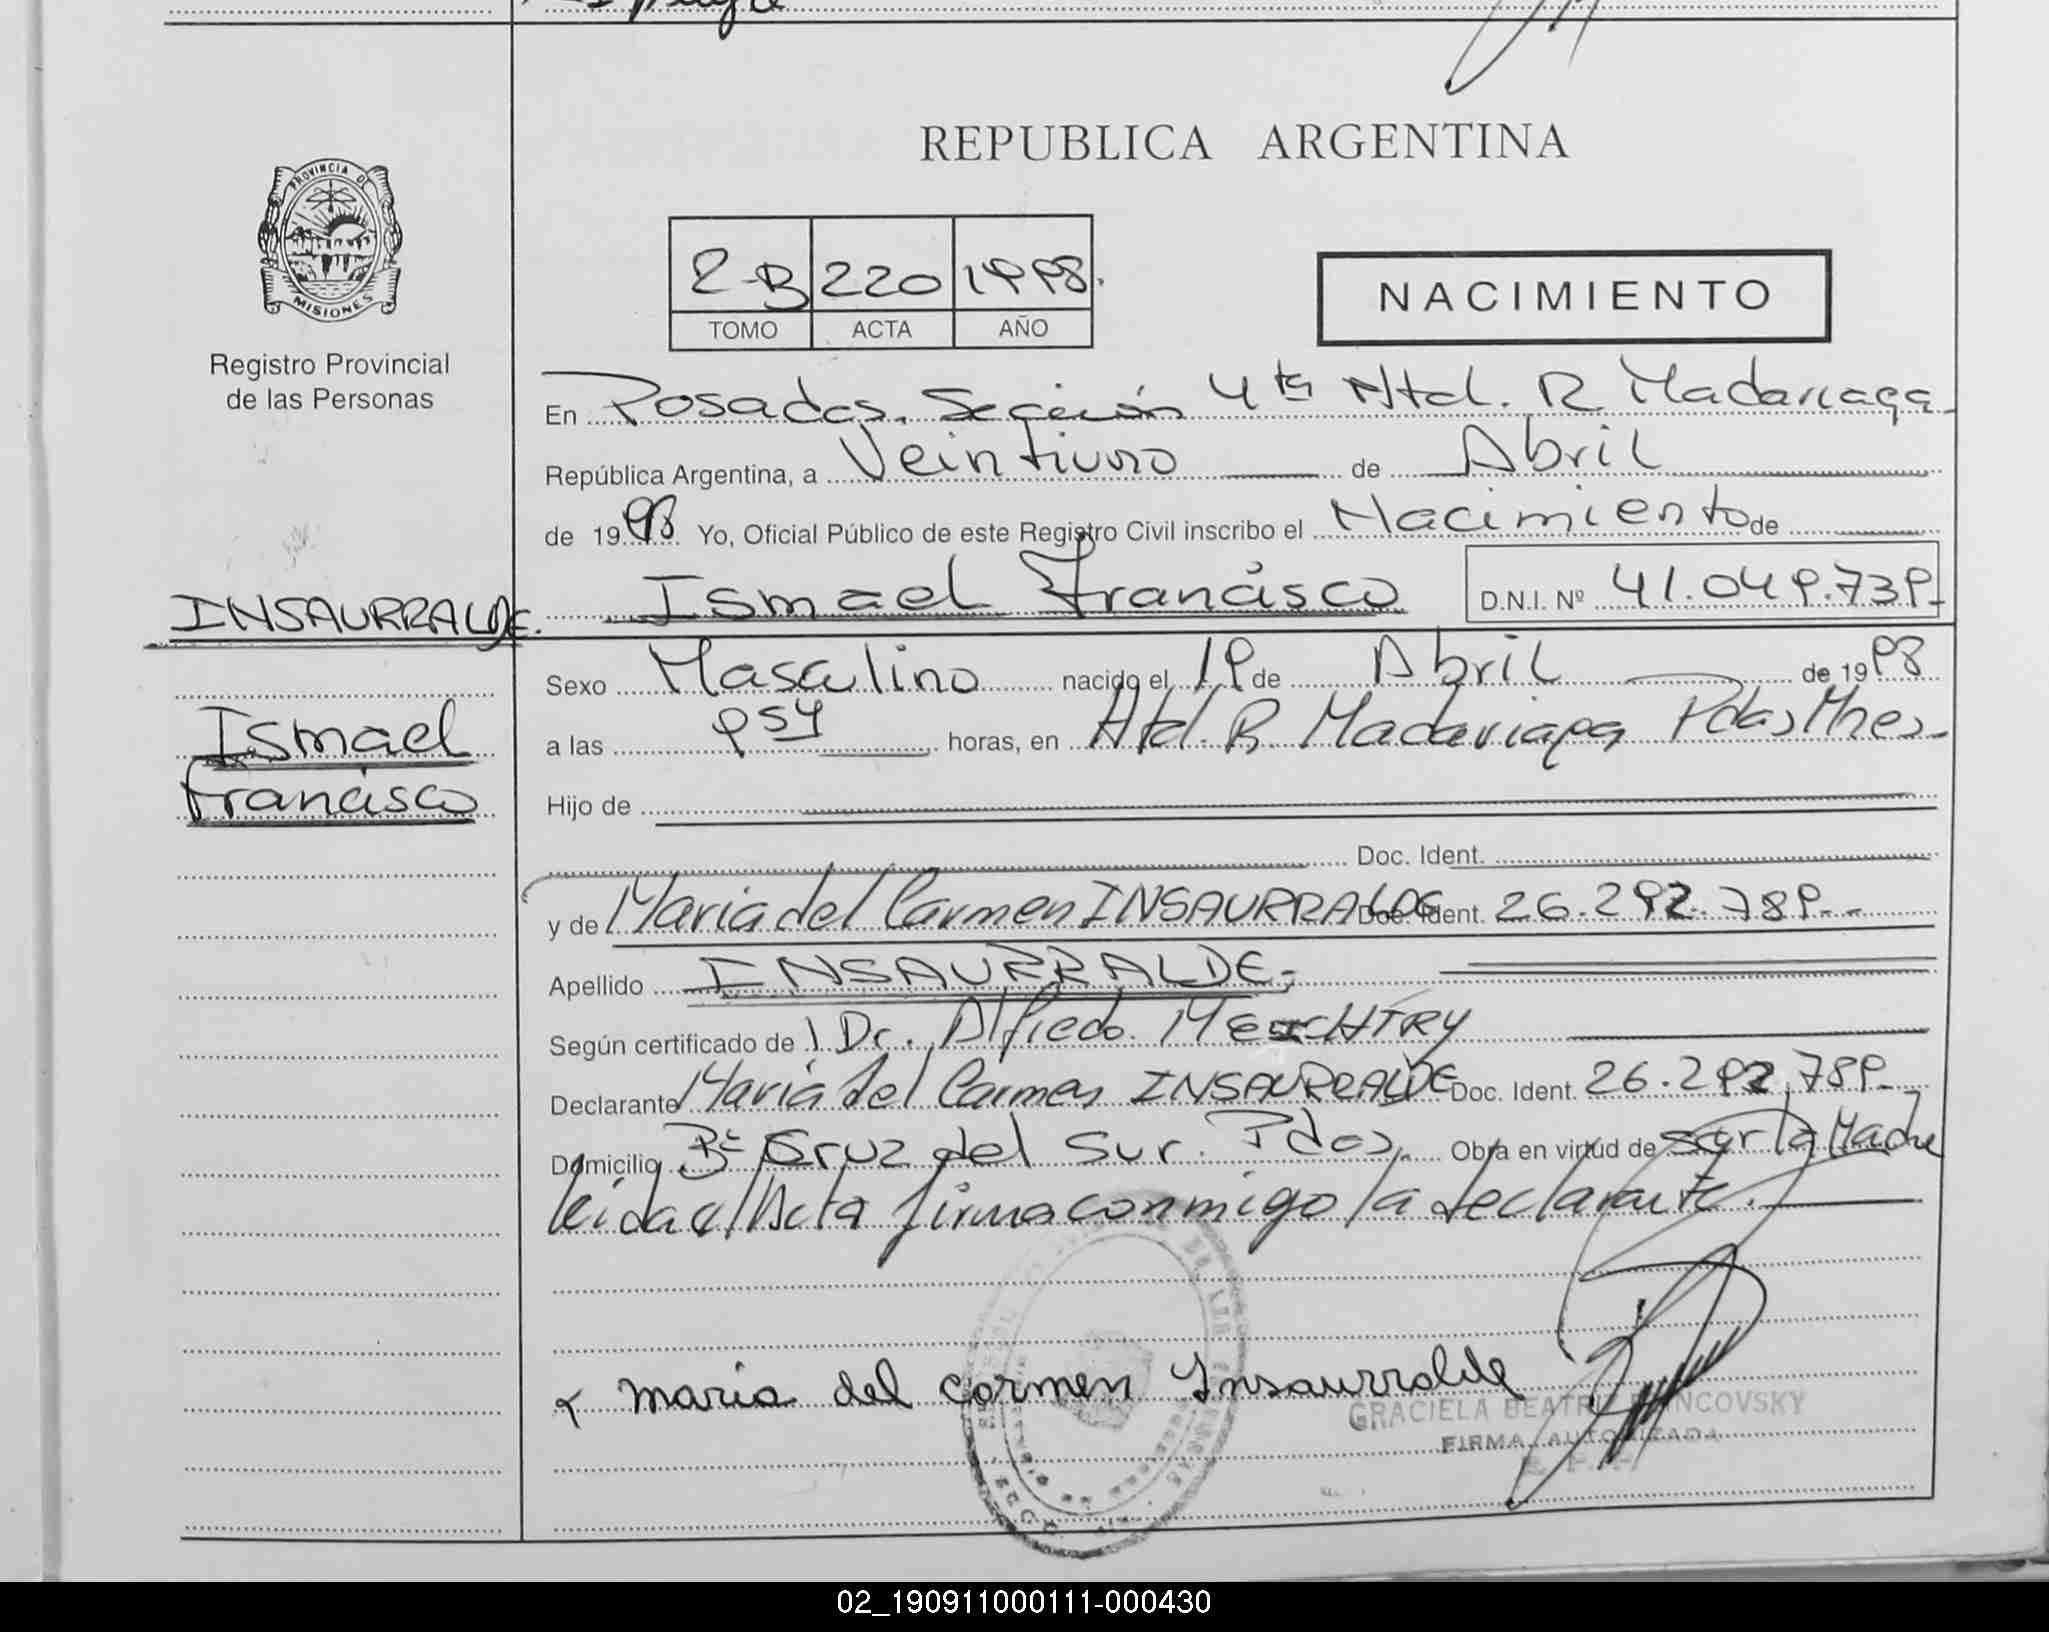 REPUBLICA ARGENTINA
PROVINCIA DE
MISIONES
Registro Provincial
de las Personas
2-B 220 1998.
TOMO ACTA AÑO
NACIMIENTO
En Posadas. Sección 4ta Htal. R Madariaga
República Argentina, a Veintiuno de Abril
de 1998 Yo, Oficial Público de este Registro Civil inscribo el Nacimiento de
INSAURRALDE.
Ismael Francisco D.N.I. Nº 41.049.739-
Sexo Masculino nacido el 19 de Abril de 1998
Ismael
Francisco
a las 9 54 horas, en Htal. R. Madariaga Pdas Mnes-
Hijo de
Doc. Ident.
y de Maria del Carmen INSAURRALDE Doc. Ident. 26.292.789--
Apellido INSAURRALDE-
Según certificado de Dr. Alfredo
Declarante Maria del Carmen INSAURRALDE Doc. Ident. 26.292.789-
Domicilio Bº Cruz del Sur. Pdas. Obra en virtud de ser la Madre
leida el Acta firma conmigo la declarante.
maria del carmen Insaurralde
GRACIELA BEATRIZ
FIRMA AUTORIZADA
02_190911000111-000430